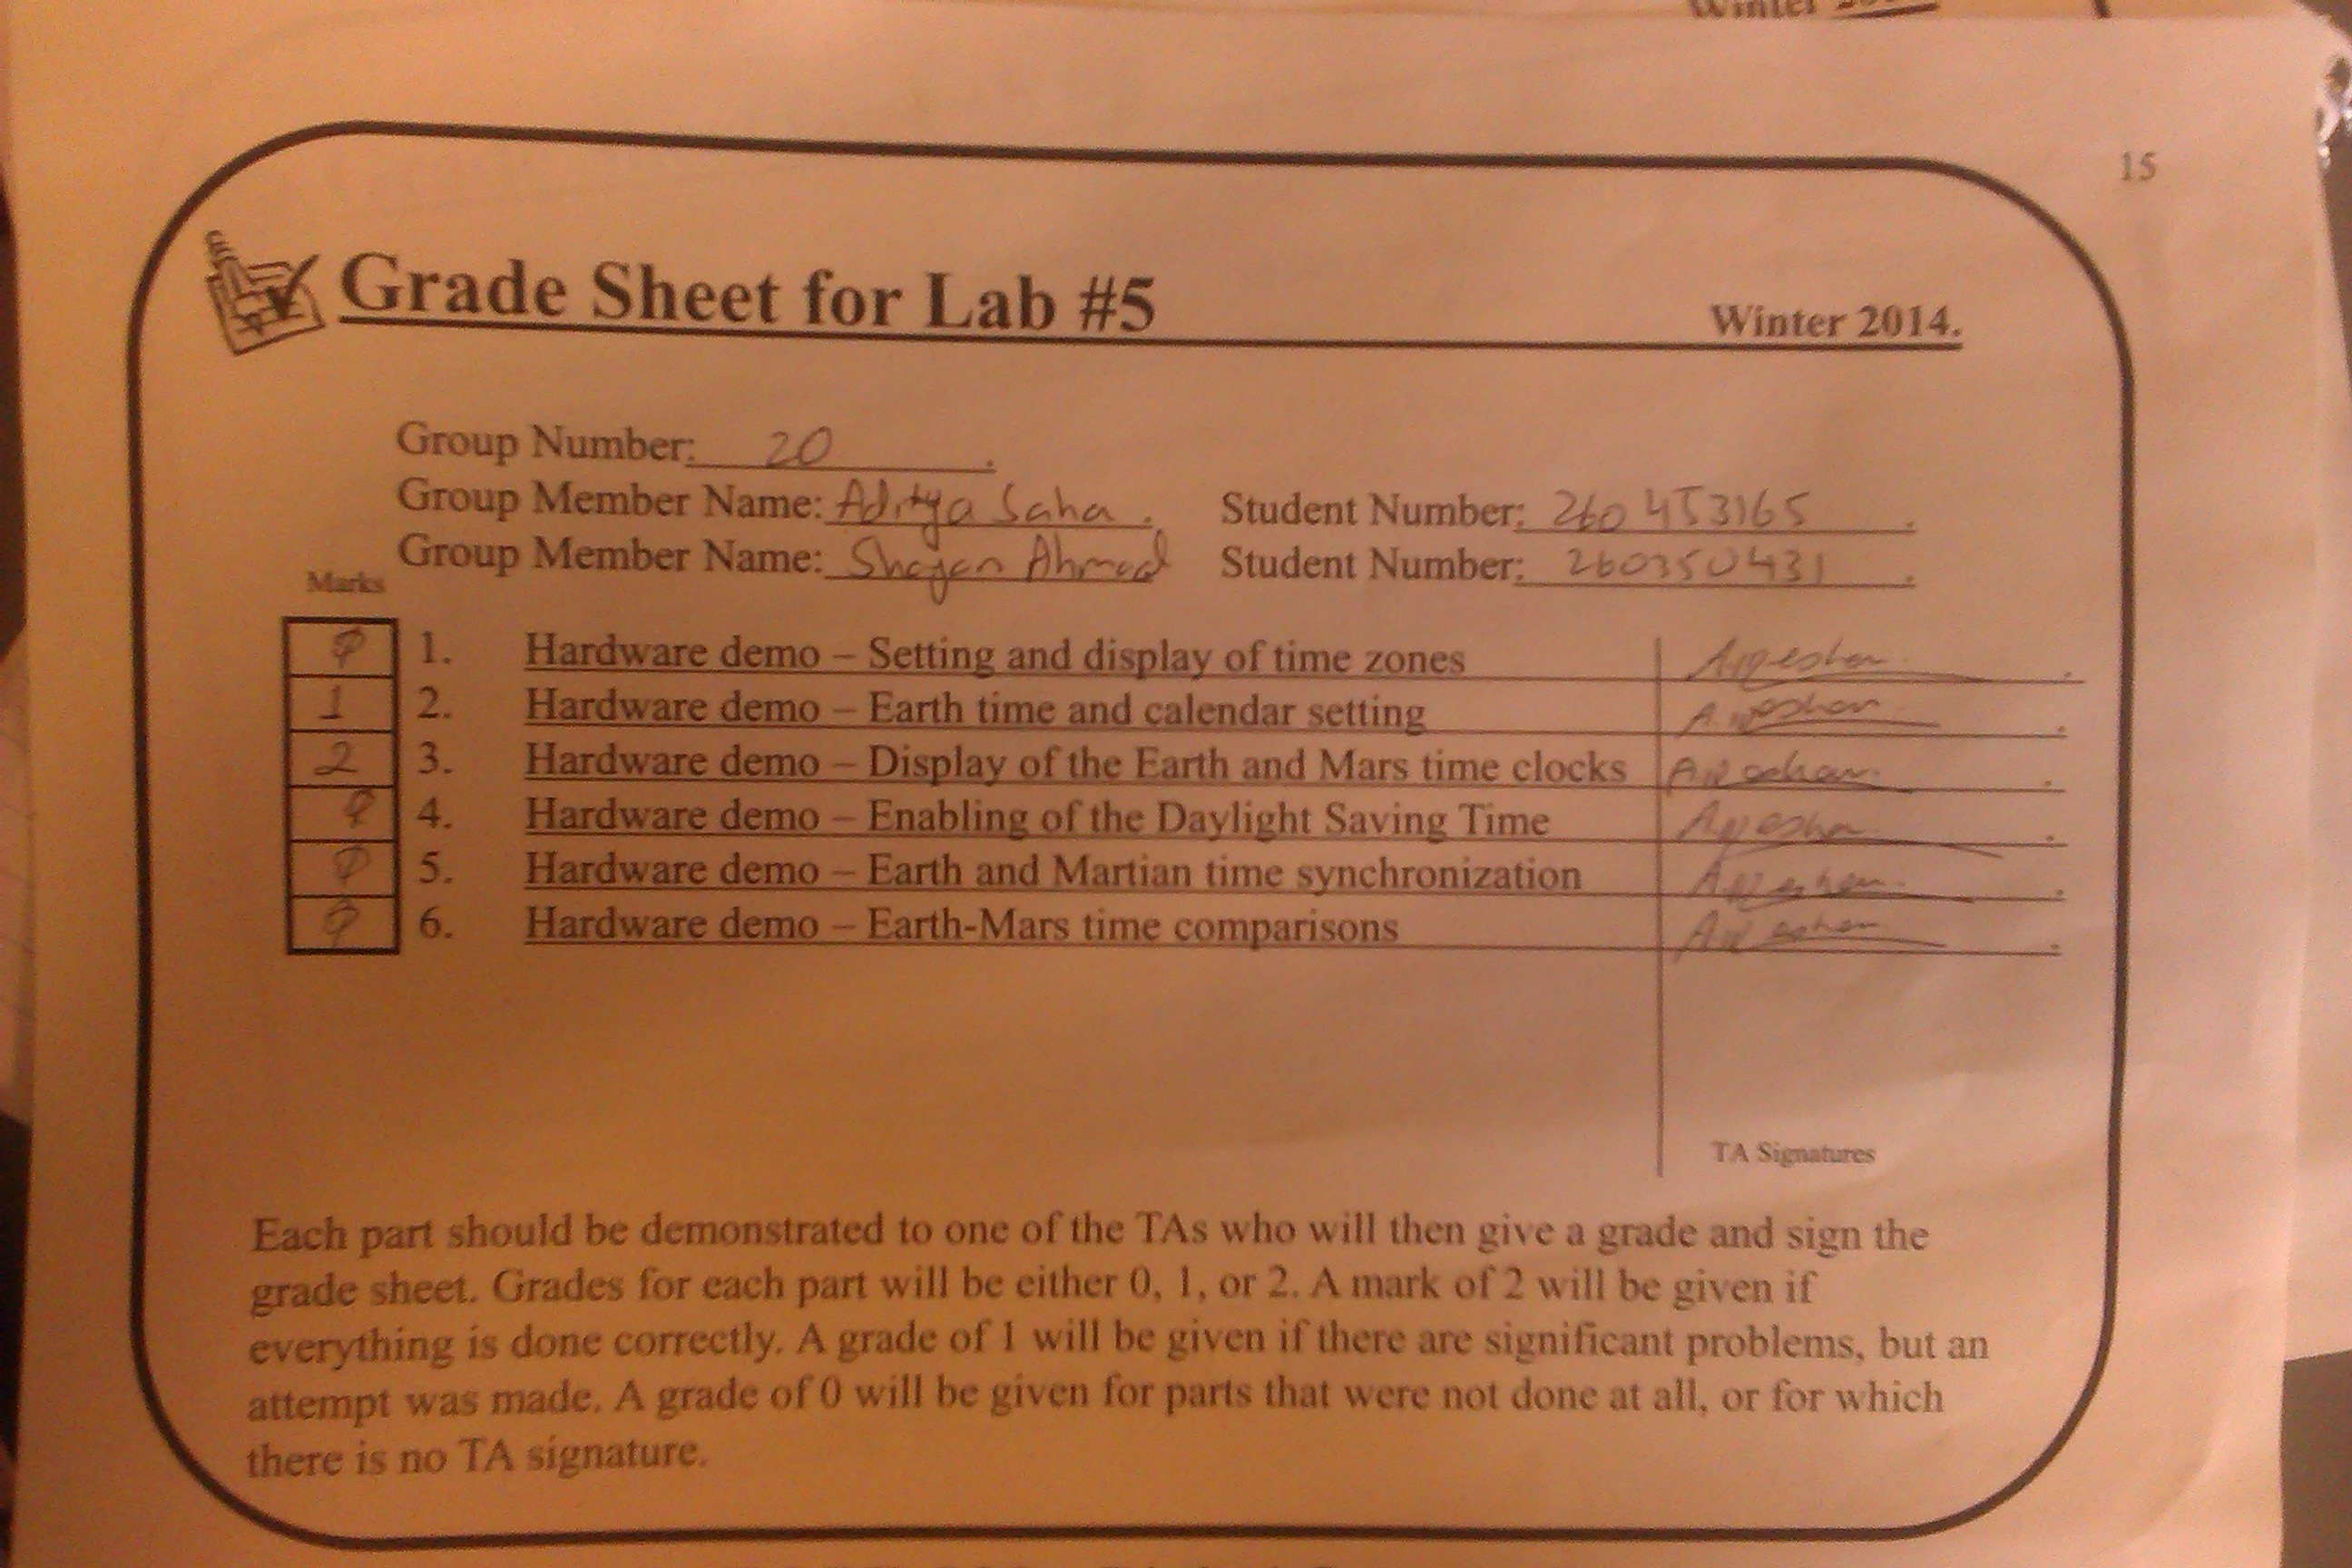 Winter
15
Grade Sheet for Lab #5 Winter 2014.
Group Number: 20 .
Group Member Name: Aditya Saha . Student Number: 260453165 .
Group Member Name: Shayan Ahmad Student Number: 260350431 .
Marks
1. Hardware demo – Setting and display of time zones
1 2. Hardware demo – Earth time and calendar setting
2 3. Hardware demo – Display of the Earth and Mars time clocks
4. Hardware demo – Enabling of the Daylight Saving Time
5. Hardware demo – Earth and Martian time synchronization
6. Hardware demo – Earth-Mars time comparisons
TA Signatures
Each part should be demonstrated to one of the TAs who will then give a grade and sign the
grade sheet. Grades for each part will be either 0, 1, or 2. A mark of 2 will be given if
everything is done correctly. A grade of 1 will be given if there are significant problems, but an
attempt was made. A grade of 0 will be given for parts that were not done at all, or for which
there is no TA signature.